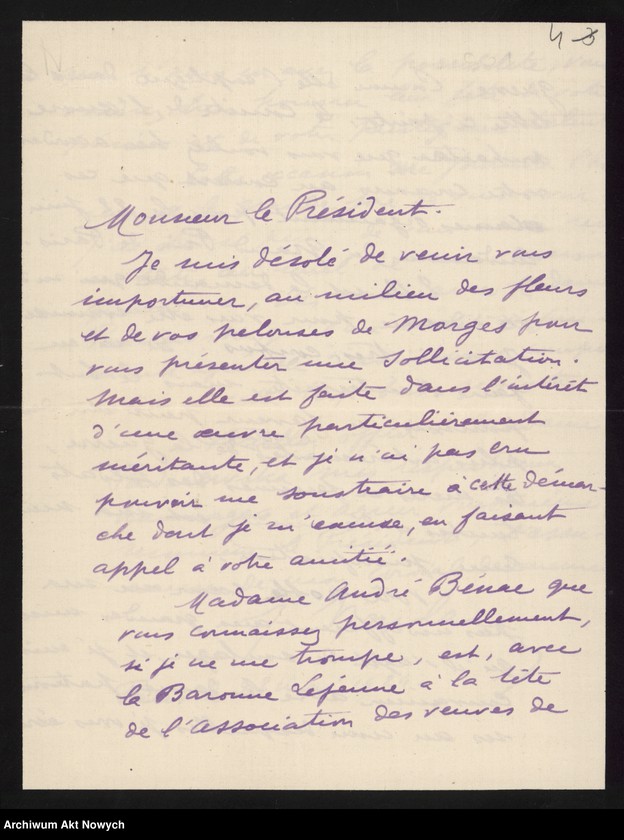 4
Monsieur le Président.
Je suis désolé de venir vous
importuner, au milieu des fleurs
et de vos pelouses de Morges pour
vous présenter une sollicitation.
Mais elle est faite dans l'intérêt
d'une œuvre particulièrement
méritante, et je n'ai pas cru
pouvoir me soustraire à cette démar-
che dont je m'excuse, en faisant
appel à votre amitié.
Madame André Bénac que
vous connaissez personnellement,
si je ne me trompe, est, avec
la Baronne Lejeune à la tête
de l'Association des veuves de
Archiwum Akt Nowych